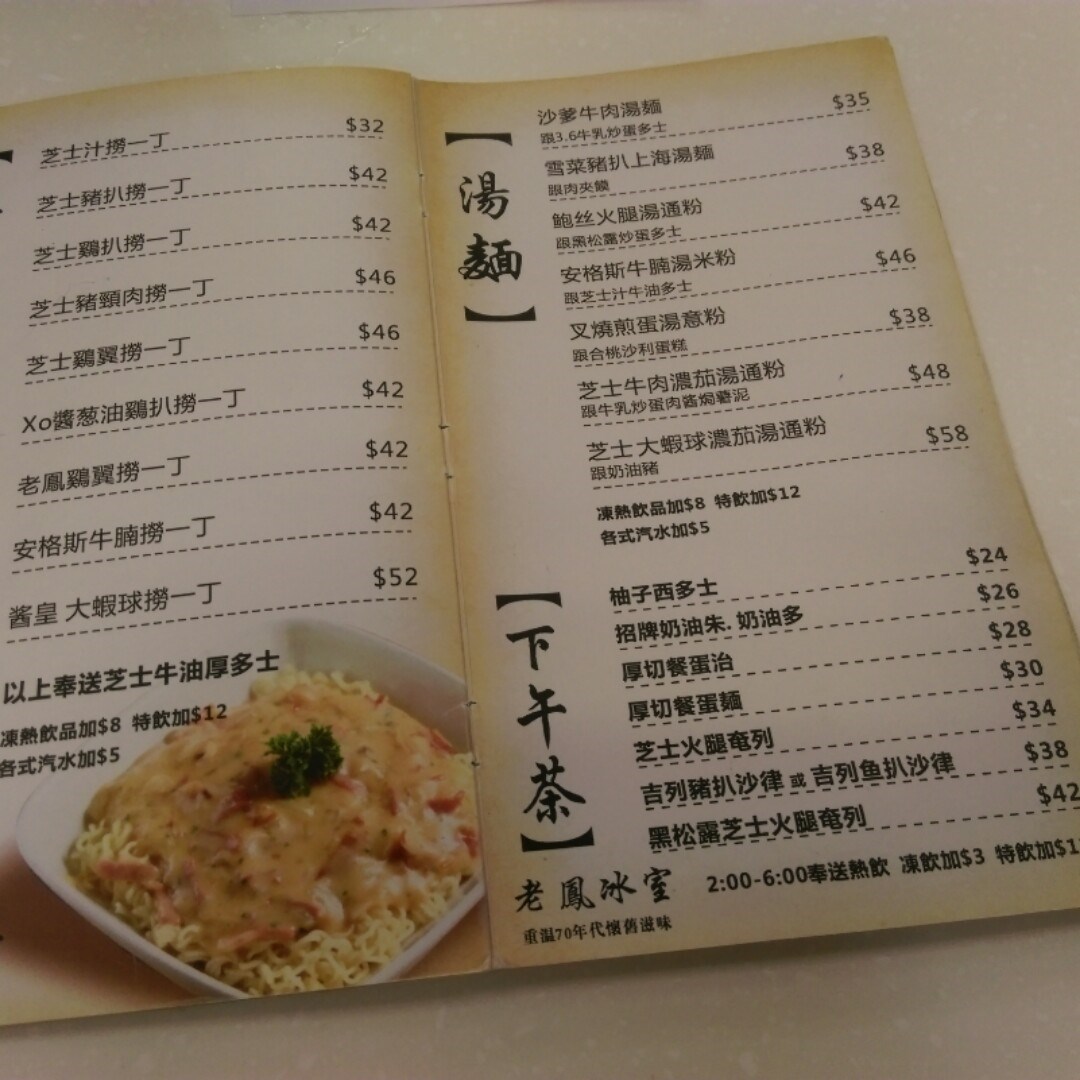 芝士汁撈一丁 $32
芝士豬扒撈一丁 $42
芝士鷄扒撈一丁 $42
芝士豬頸肉撈一丁 $46
芝士鷄翼撈一丁 $46
Xo醬葱油鷄扒撈一丁 $42
老鳳鷄翼撈一丁 $42
安格斯牛腩撈一丁 $42
酱皇 大蝦球撈一丁 $52
以上奉送芝士牛油厚多士
凍熱飲品加$8 特飲加$12
各式汽水加$5
【湯麵】
沙爹牛肉湯麵 $35
跟3.6牛乳炒蛋多士
雪菜豬扒上海湯麵 $38
跟肉夾饃
鮑丝火腿湯通粉 $42
跟黑松露炒蛋多士
安格斯牛腩湯米粉 $46
跟芝士汁牛油多士
叉燒煎蛋湯意粉 $38
跟合桃沙利蛋糕
芝士牛肉濃茄湯通粉 $48
跟牛乳炒蛋肉酱焗薯泥
芝士大蝦球濃茄湯通粉 $58
跟奶油豬
凍熱飲品加$8 特飲加$12
各式汽水加$5
【下午茶】
柚子西多士 $24
招牌奶油朱.奶油多 $26
厚切餐蛋治 $28
厚切餐蛋麵 $30
芝士火腿奄列 $34
吉列豬扒沙律 或 吉列鱼扒沙律 $38
黑松露芝士火腿奄列 $42
2:00-6:00奉送熱飲 凍飲加$3 特飲加
老鳳冰室
重温70年代懷舊滋味